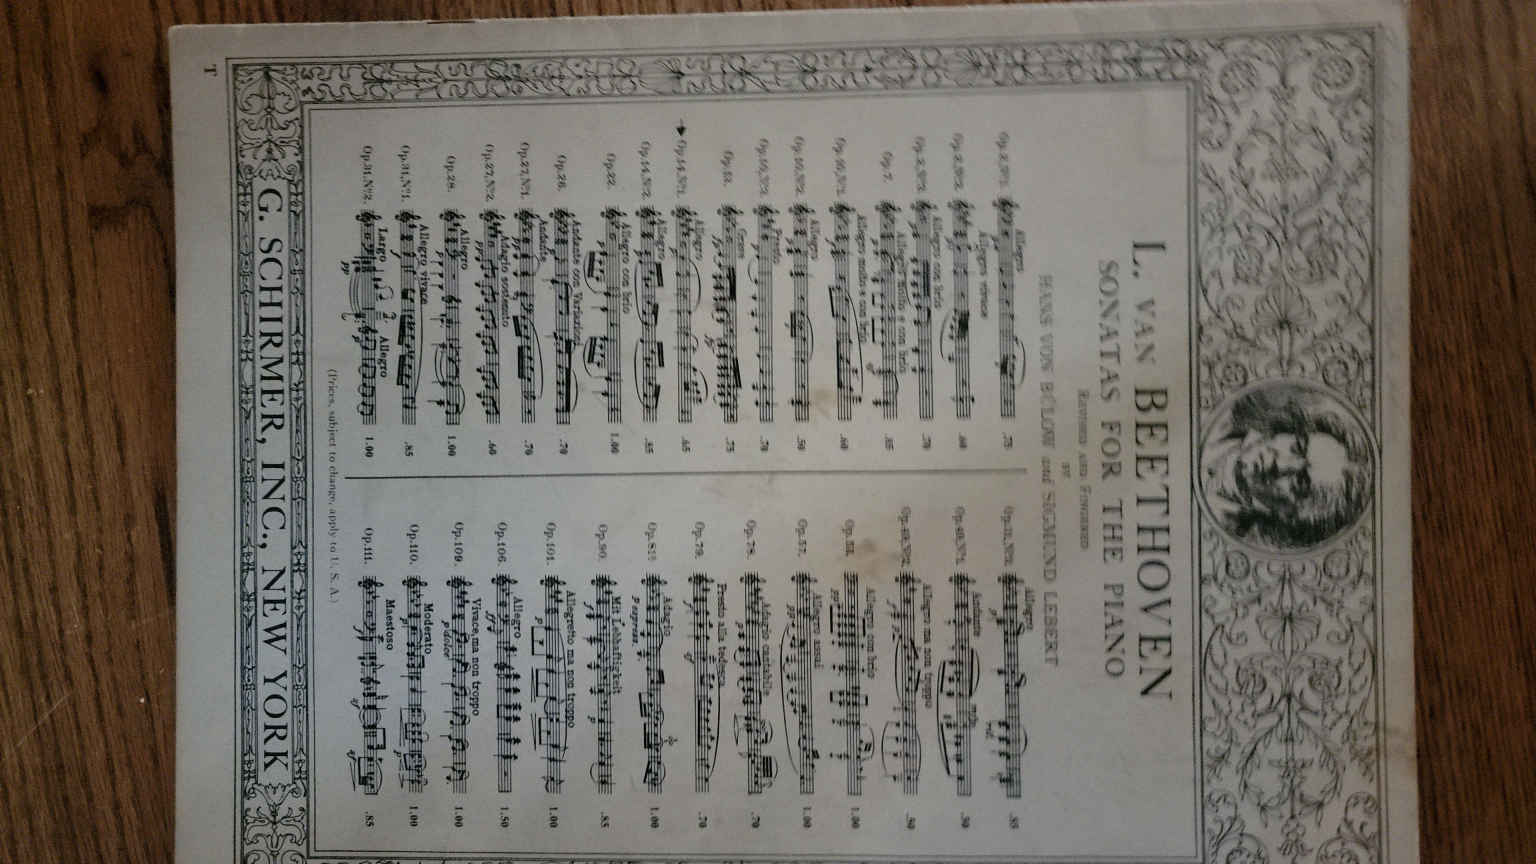 L. VAN BEETHOVEN
SONATAS FOR THE PIANO
REVISED AND FINGERED
BY
HANS VON BÜLOW and SIGMUND LEBERT
Op.2,Nº1. Allegro .75
Op.2,Nº2. Allegro vivace
Op.2,Nº3. Allegro con brio .70
Op.7. Allegro molto e con brio .85
Op.10,Nº1. Allegro molto e con brio .60
Op.10,Nº2. Allegro .50
Op.10,Nº3. Presto .70
Op.13. Grave .75
Op.14,Nº1. Allegro .65
Op.14,Nº2. Allegro
Op.22. Allegro con brio 1.00
Op.26. Andante con Variazioni .70
Op.27,Nº1. Andante .70
Op.27,Nº2. Adagio sostenuto .60
Op.28. Allegro 1.00
Op.31,Nº1. Allegro vivace .85
Op.31,Nº2. Largo Allegro 1.00
Op.31,Nº3. Allegro .85
Op.49,Nº1. Andante .50
Op.49,Nº2. Allegro ma non troppo .50
Op.53. Allegro con brio 1.00
Op.57. Allegro assai 1.00
Op.78. Adagio cantabile .70
Op.79. Presto alla tedesca .70
Op.81ª. Adagio espress. 1.00
Op.90. Mit Lebhaftigkeit .85
Op.101. Allegretto ma non troppo 1.00
Op.106. Allegro 1.50
Op.109. Vivace, ma non troppo p dolce 1.00
Op.110. Moderato 1.00
Op.111. Maestoso .85
(Prices, subject to change, apply to U. S. A.)
G. SCHIRMER, INC., NEW YORK
T